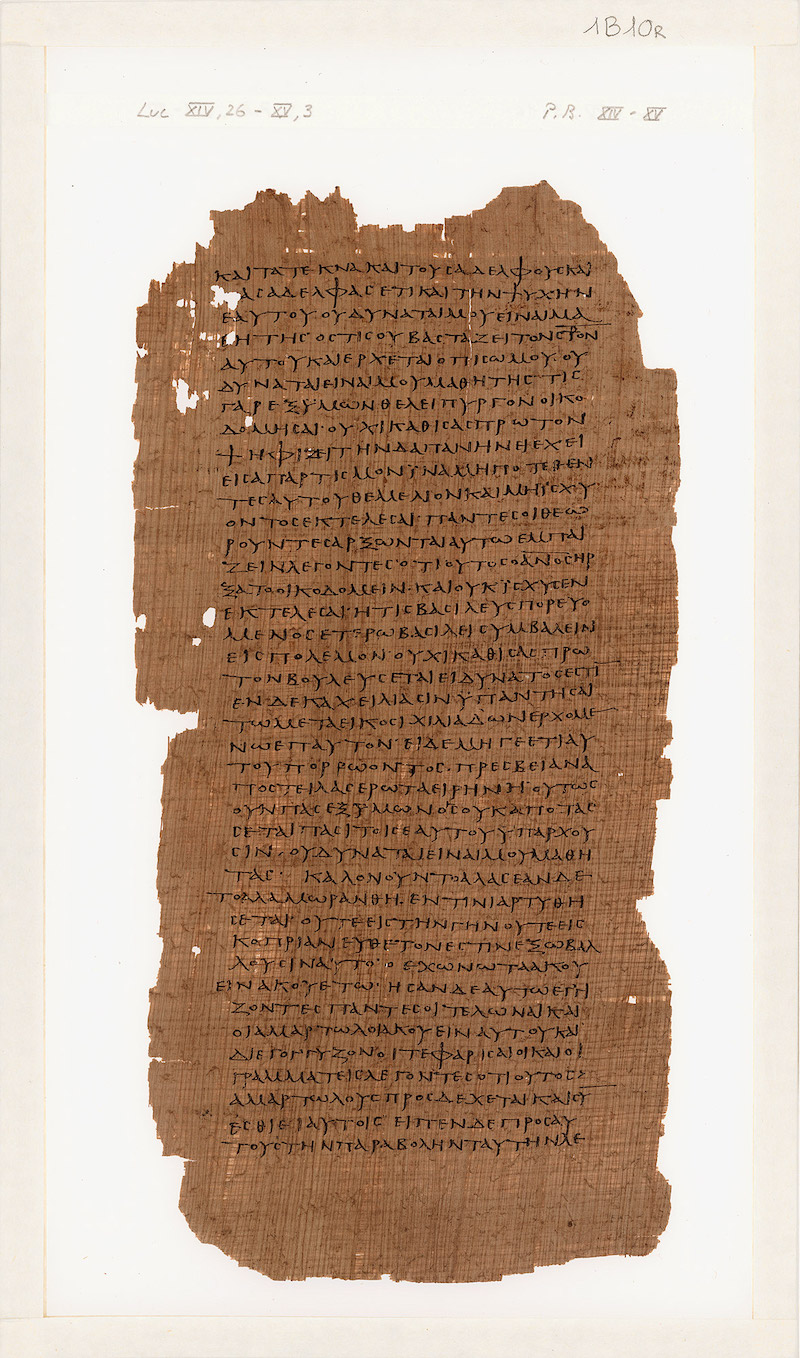 1B10R
Luc XIV, 26 - XV, 3
P.B. XIV - XV
ΚΑΙΤΑΤΕΚΝΑΚΑΙΤΟΥΣΑΔΕΛΦΟΥΣΚΑΙ
ΑΣΑΔΕΛΦΑΣΕΤΙΚΑΙΤΗΝΨΥΧΗΝ
ΕΑΥΤΟΥ·ΟΥΔΥΝΑΤΑΙΜΟΥΕΙΝΑΙΜΑ
ΘΗΤΗΣ·ΟΣΤΙΣΟΥΒΑΣΤΑΖΕΙΤΟΝ
ΑΥΤΟΥΚΑΙΕΡΧΕΤΑΙΟΠΙΣΩΜΟΥ·ΟΥ
ΔΥΝΑΤΑΙΕΙΝΑΙΜΟΥΜΑΘΗΤΗΣ·ΤΙΣ
ΓΑΡΕΞΥΜΩΝΘΕΛΕΙΠΥΡΓΟΝΟΙΚΟ
ΔΟΜΗΣΑΙ·ΟΥΧΙΚΑΘΙΣΑΣΠΡΩΤΟΝ
ΨΗΦΙΖΕΙΤΗΝΔΑΠΑΝΗΝΕΙΕΧΕΙ
ΕΙΣΑΠΑΡΤΙΣΜΟΝΙΝΑΜΗΠΟΤΕΘΕΝ
ΤΕΣΑΥΤΟΥΘΕΜΕΛΙΟΝΚΑΙΜΗΙΣΧΥ
ΟΝΤΟΣΕΚΤΕΛΕΣΑΙ·ΠΑΝΤΕΣΟΙΘΕΩ
ΡΟΥΝΤΕΣΑΡΞΩΝΤΑΙΑΥΤΩΕΜΠΑΙ
ΖΕΙΝΛΕΓΟΝΤΕΣ·ΟΤΙΟΥΤΟΣΟΑΝΟΣΗΡ
ΞΑΤΟΟΙΚΟΔΟΜΕΙΝ·ΚΑΙΟΥΚΙΣΧΥΣΕΝ
ΕΚΤΕΛΕΣΑΙ·ΗΤΙΣΒΑΣΙΛΕΥΣΠΟΡΕΥΟ
ΜΕΝΟΣΕΤΕΡΩΒΑΣΙΛΕΙΣΥΜΒΑΛΕΙΝ
ΕΙΣΠΟΛΕΜΟΝ·ΟΥΧΙΚΑΘΙΣΑΣΠΡΩ
ΤΟΝΒΟΥΛΕΥΣΕΤΑΙΕΙΔΥΝΑΤΟΣΕΣΤΙ
ΕΝΔΕΚΑΧΕΙΛΙΑΣΙΝΥΠΑΝΤΗΣΑΙ
ΤΩΜΕΤΑΕΙΚΟΣΙΧΙΛΙΑΔΩΝΕΡΧΟΜΕ
ΝΩΕΠΑΥΤΟΝ·ΕΙΔΕΜΗΓΕΕΤΙΑΥ
ΤΟΥΠΟΡΡΩΟΝΤΟΣ·ΠΡΕΣΒΕΙΑΝΑ
ΠΟΣΤΕΙΛΑΣΕΡΩΤΑΕΙΡΗΝΗ·ΟΥΤΩΣ
ΟΥΝΠΑΣΕΞΥΜΩΝΟΣΟΥΚΑΠΟΤΑΣ
ΣΕΤΑΙΠΑΣΙΤΟΙΣΕΑΥΤΟΥΥΠΑΡΧΟΥ
ΣΙΝ·ΟΥΔΥΝΑΤΑΙΕΙΝΑΙΜΟΥΜΑΘΗ
ΤΑΣ· ΚΑΛΟΝΟΥΝΤΟΑΛΑΣΕΑΝΔΕ
ΤΟΑΛΑΜΩΡΑΝΘΗ·ΕΝΤΙΝΙΑΡΤΥΘΗ
ΣΕΤΑΙ·ΟΥΤΕΕΙΣΤΗΝΓΗΝΟΥΤΕΕΙΣ
ΚΟΠΡΙΑΝΕΥΘΕΤΟΝΕΣΤΙΝΕΞΩΒΑΛ
ΛΟΥΣΙΝΑΥΤΟ·ΟΕΧΩΝΩΤΑΑΚΟΥ
ΕΙΝΑΚΟΥΕΤΩ· ΗΣΑΝΔΕΑΥΤΩΕΓΓΙ
ΖΟΝΤΕΣΠΑΝΤΕΣΟΙΤΕΛΩΝΑΙΚΑΙ
ΟΙΑΜΑΡΤΩΛΟΙΑΚΟΥΕΙΝΑΥΤΟΥΚΑΙ
ΔΙΕΓΟΓΓΥΖΟΝΟΙΤΕΦΑΡΙΣΑΙΟΙΚΑΙΟΙ
ΓΡΑΜΜΑΤΕΙΣΛΕΓΟΝΤΕΣΟΤΙΟΥΤΟΣ
ΑΜΑΡΤΩΛΟΥΣΠΡΟΣΔΕΧΕΤΑΙΚΑΙΣΥ
ΕΣΘΙΕΙΑΥΤΟΙΣ ΕΙΠΕΝΔΕΠΡΟΣΑΥ
ΤΟΥΣΤΗΝΠΑΡΑΒΟΛΗΝΤΑΥΤΗΝΛΕ